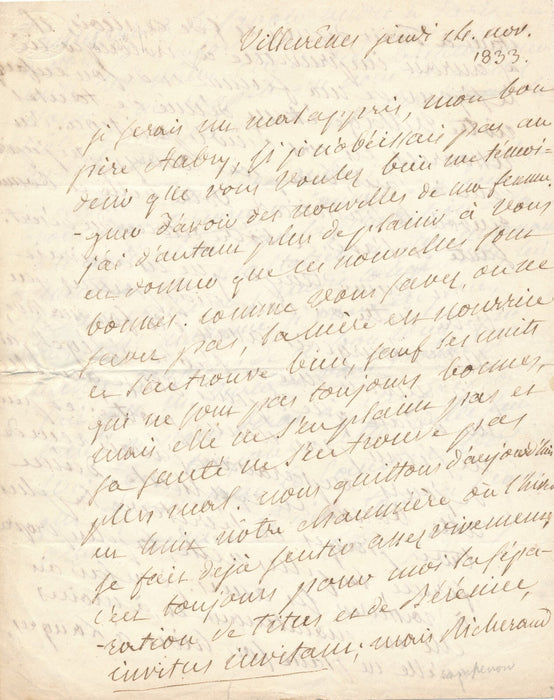 Villecrênes jeudi 14. nov.
1833.
je serais un malappris, mon bon
père Aubry, si je n'obéissais pas au
desir que vous voulez bien me témoi-
-gner d'avoir des nouvelles de ma femme
j'ai d'autant plus de plaisir à vous
en donner que ces nouvelles sont
bonnes. comme vous savez, ou ne
savez pas, la mère est nourrice
et s'en trouve bien, sauf ses nuits
qui ne sont pas toujours bonnes,
mais elle ne s'en plaint pas et
sa santé ne s'en trouve pas
plus mal. nous quittons d'aujourd'hui
en huit notre chaumière où l'hiver
se fait déjà sentir assez vivement
c'est toujours pour moi la sépa-
-ration de Titus et de Bérénice,
invitus invitam; mais Richerand